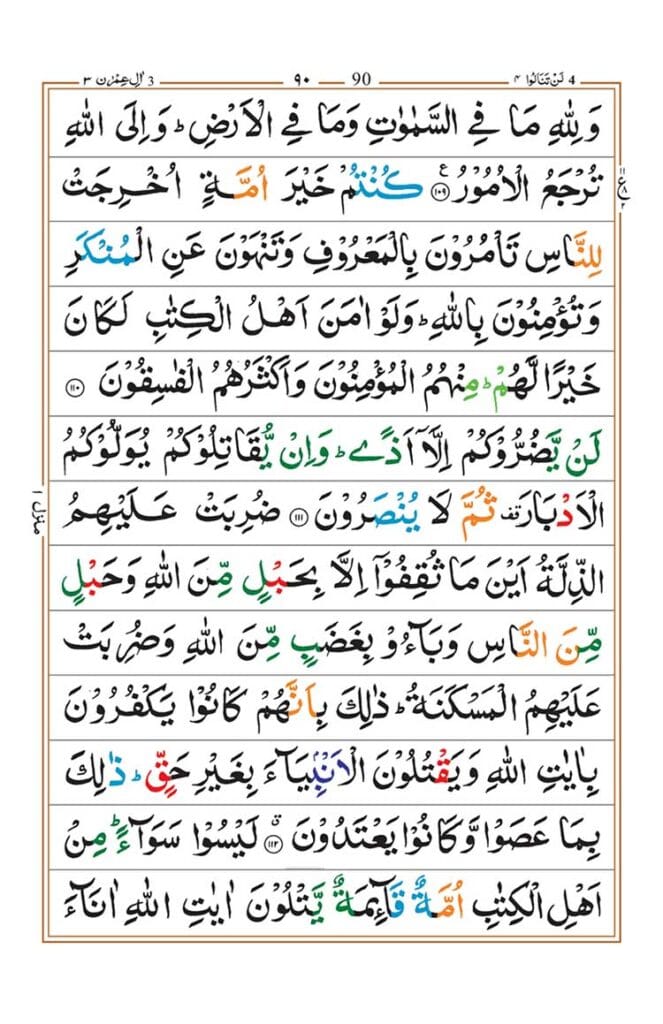 4 لَنْ تَنَالُوْا ۴ 90 ۹۰ 3 اٰلِ عِمْرٰن ۳
وَلِلّٰهِ مَا فِي السَّمٰوٰتِ وَمَا فِي الْاَرْضِ ؕ وَاِلَى اللّٰهِ
تُرْجَعُ الْاُمُوْرُ ۧ‏﴿۱۰۹﴾ كُنْتُمْ خَيْرَ اُمَّةٍ اُخْرِجَتْ
ع
لِلنَّاسِ تَاْمُرُوْنَ بِالْمَعْرُوْفِ وَتَنْهَوْنَ عَنِ الْمُنْكَرِ
وَتُؤْمِنُوْنَ بِاللّٰهِ ؕ وَلَوْ اٰمَنَ اَهْلُ الْكِتٰبِ لَكَانَ
خَيْرًا لَّهُمْ ؕ مِنْهُمُ الْمُؤْمِنُوْنَ وَاَكْثَرُهُمُ الْفٰسِقُوْنَ ﴿۱۱۰﴾
لَنْ يَّضُرُّوْكُمْ اِلَّاۤ اَذًى ؕ وَاِنْ يُّقَاتِلُوْكُمْ يُوَلُّوْكُمُ
الْاَدْبَارَ ࣞ ثُمَّ لَا يُنْصَرُوْنَ ﴿۱۱۱﴾ ضُرِبَتْ عَلَيْهِمُ
منزل ۱
الذِّلَّةُ اَيْنَ مَا ثُقِفُوْۤا اِلَّا بِحَبْلٍ مِّنَ اللّٰهِ وَحَبْلٍ
مِّنَ النَّاسِ وَبَآءُوْ بِغَضَبٍ مِّنَ اللّٰهِ وَضُرِبَتْ
عَلَيْهِمُ الْمَسْكَنَةُ ؕ ذٰلِكَ بِاَنَّهُمْ كَانُوْا يَكْفُرُوْنَ
بِاٰيٰتِ اللّٰهِ وَيَقْتُلُوْنَ الْاَنْۢبِيَآءَ بِغَيْرِ حَقٍّ ؕ ذٰلِكَ
بِمَا عَصَوْا وَّكَانُوْا يَعْتَدُوْنَ ۗ‏﴿۱۱۲﴾ لَيْسُوْا سَوَآءً ؕ مِنْ
اَهْلِ الْكِتٰبِ اُمَّةٌ قَآئِمَةٌ يَّتْلُوْنَ اٰيٰتِ اللّٰهِ اٰنَآءَ